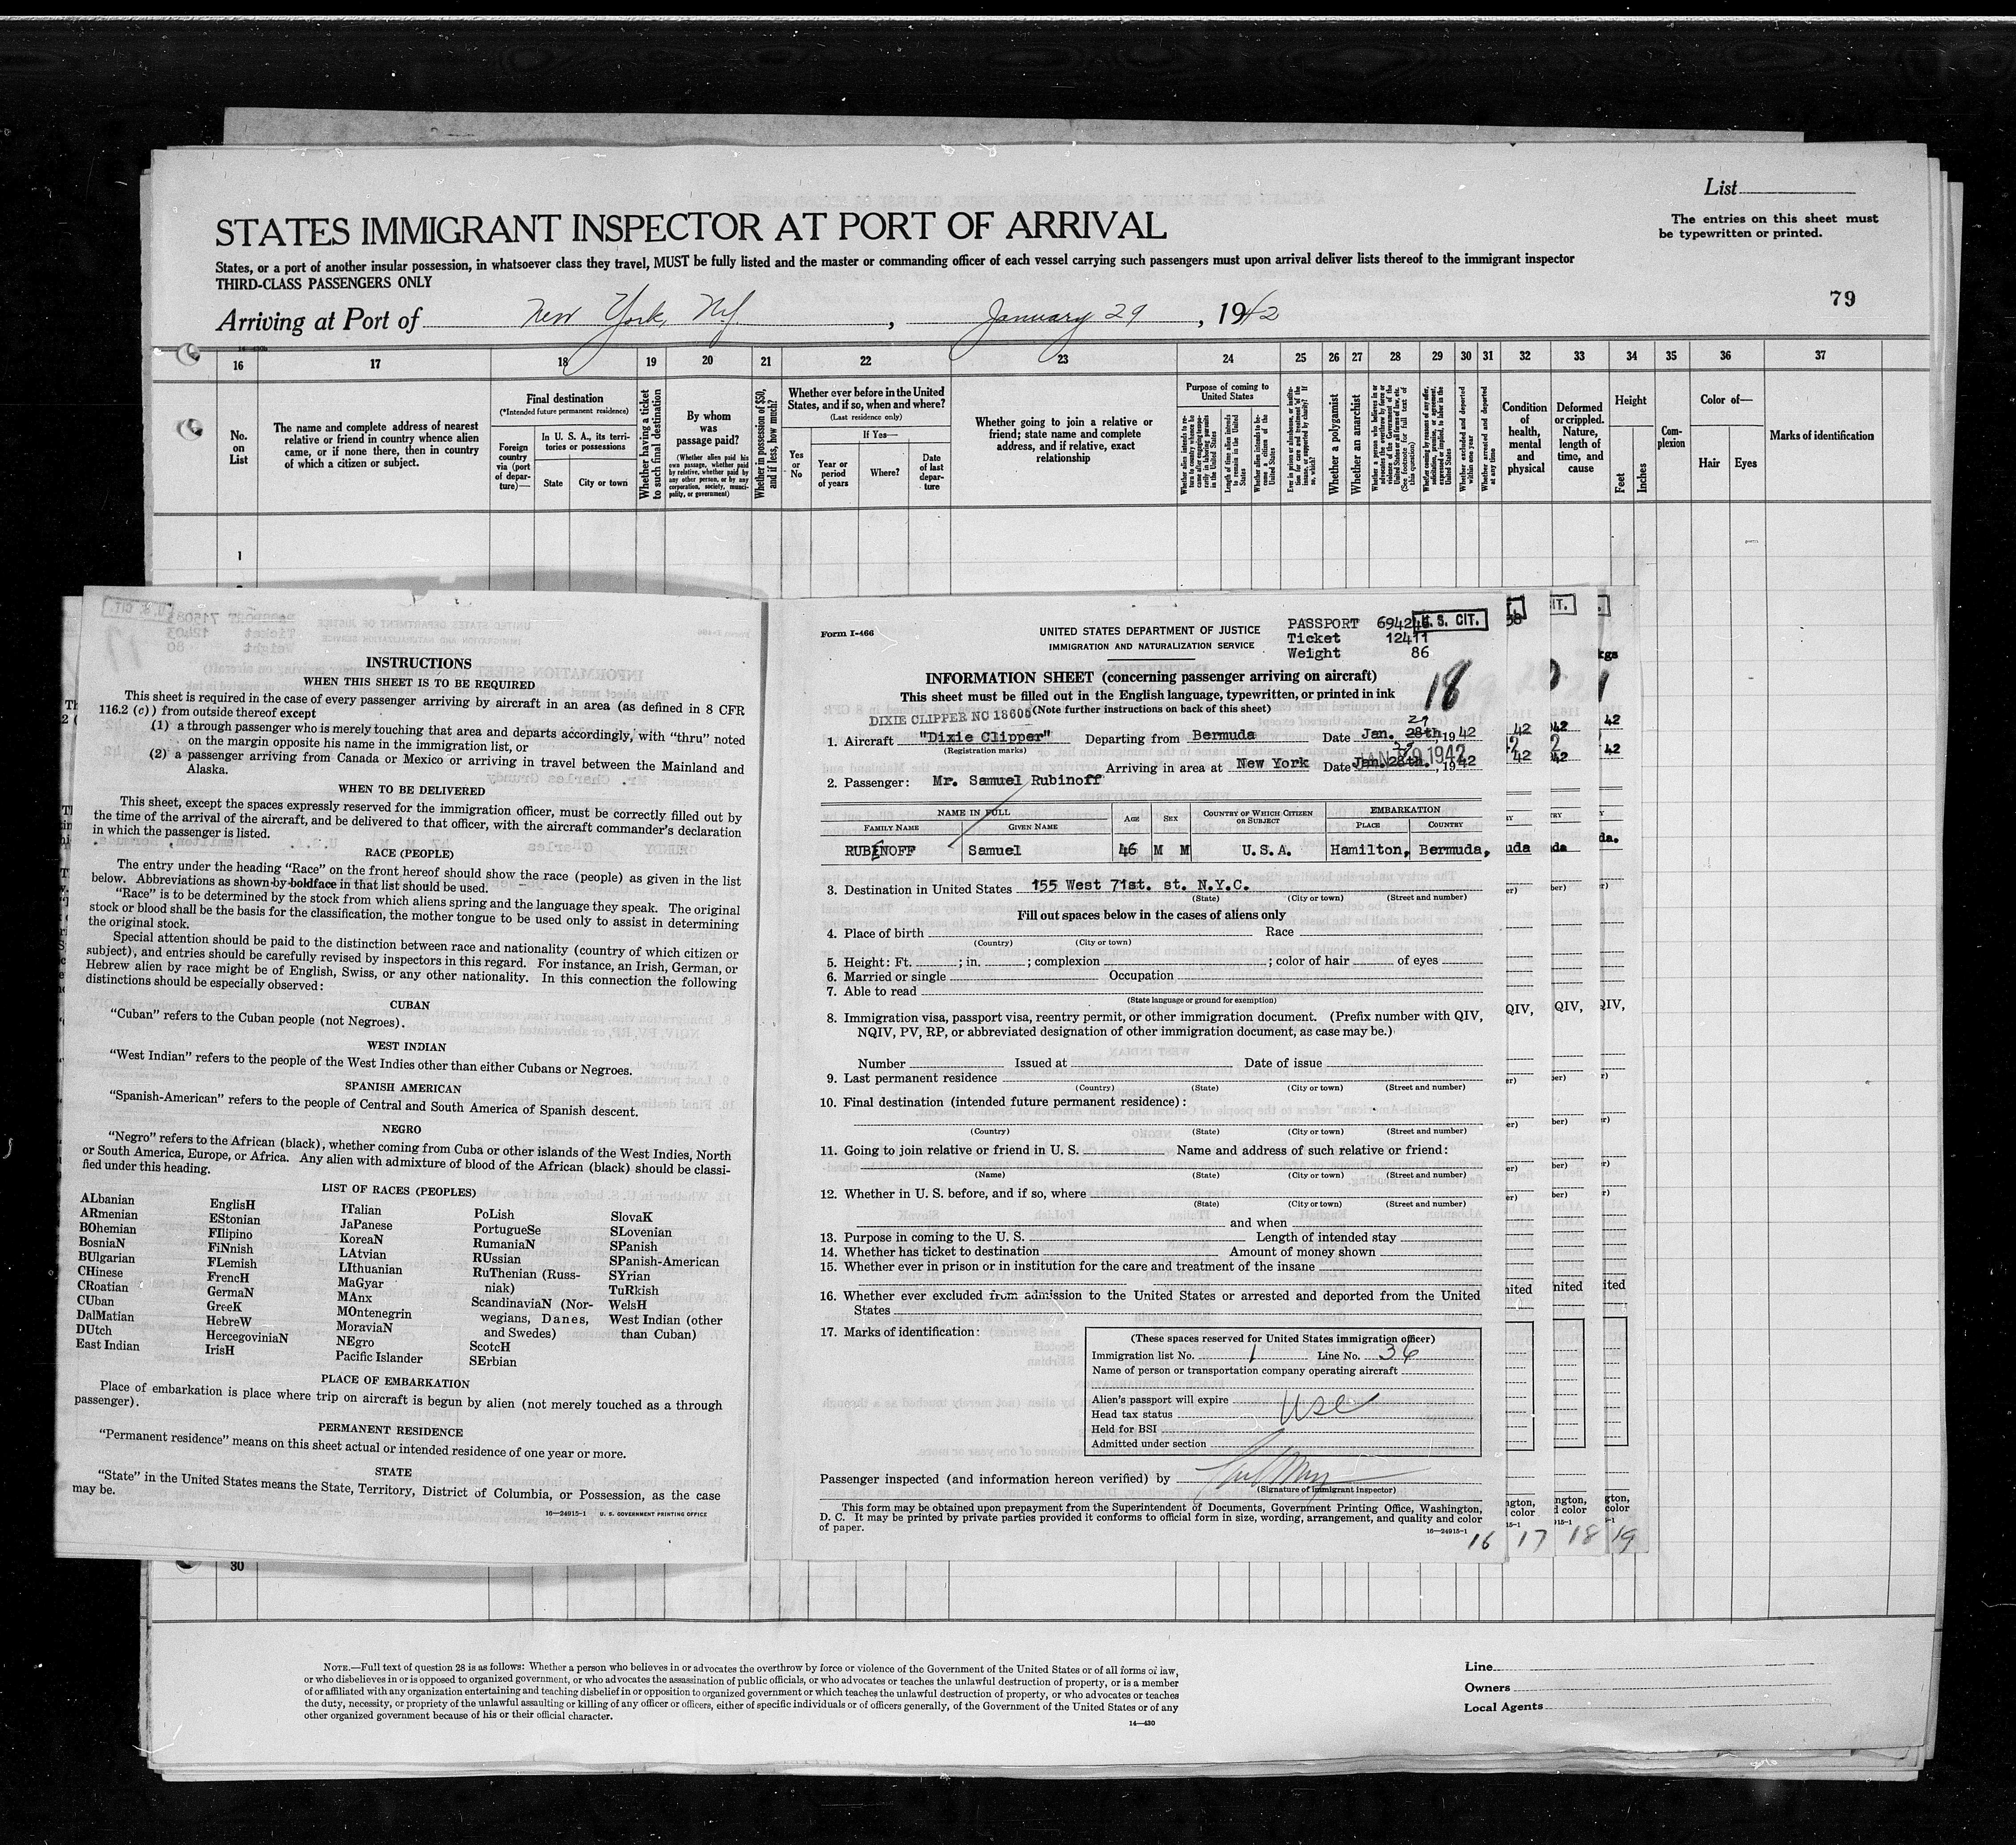 List
The entries on this sheet must
be typewritten or printed.
STATES IMMIGRANT INSPECTOR AT PORT OF ARRIVAL
States, or a port of another insular possession, in whatsoever class they travel, MUST be fully listed and the master or commanding officer of each vessel carrying such passengers must upon arrival deliver lists thereof to the immigrant inspector
THIRD-CLASS PASSENGERS ONLY
79
Arriving at Port of New York, NY, January 29, 1942
16 17 18 19 20 21 22 23 24 25 26 27 28 29 30 31 32 33 34 35 36 37
No. on List
The name and complete address of nearest relative or friend in country whence alien came, or if none there, then in country of which a citizen or subject.
Final destination
(*Intended future permanent residence)
Foreign country via (port of departure)—
In U. S. A., its territories or possessions
State
City or town
Whether having a ticket to such final destination
By whom was passage paid?
(Whether alien paid his own passage, whether paid by relative, whether paid by any other person, or by any corporation, society, municipality, or government)
Whether in possession of $50, and if less, how much?
Whether ever before in the United States, and if so, when and where?
(Last residence only)
If Yes—
Yes or No
Year or period of years
Where?
Date of last departure
Whether going to join a relative or friend; state name and complete address, and if relative, exact relationship
Purpose of coming to United States
Length of time alien intends to remain in the United States
Whether alien intends to become a citizen of the United States
Whether a polygamist
Whether an anarchist
Whether excluded and deported within one year
Whether arrested and deported at any time
Condition of health, mental and physical
Deformed or crippled. Nature, length of time, and cause
Height
Feet
Inches
Complexion
Color of—
Hair
Eyes
Marks of identification
1
INSTRUCTIONS
WHEN THIS SHEET IS TO BE REQUIRED
This sheet is required in the case of every passenger arriving by aircraft in an area (as defined in 8 CFR
116.2 (c)) from outside thereof except
(1) a through passenger who is merely touching that area and departs accordingly, with "thru" noted
on the margin opposite his name in the immigration list, or
(2) a passenger arriving from Canada or Mexico or arriving in travel between the Mainland and
Alaska.
WHEN TO BE DELIVERED
This sheet, except the spaces expressly reserved for the immigration officer, must be correctly filled out by
the time of the arrival of the aircraft, and be delivered to that officer, with the aircraft commander's declaration
in which the passenger is listed.
RACE (PEOPLE)
The entry under the heading "Race" on the front hereof should show the race (people) as given in the list
below. Abbreviations as shown by boldface in that list should be used.
"Race" is to be determined by the stock from which aliens spring and the language they speak. The original
stock or blood shall be the basis for the classification, the mother tongue to be used only to assist in determining
the original stock.
Special attention should be paid to the distinction between race and nationality (country of which citizen or
subject), and entries should be carefully revised by inspectors in this regard. For instance, an Irish, German, or
Hebrew alien by race might be of English, Swiss, or any other nationality. In this connection the following
distinctions should be especially observed:
CUBAN
"Cuban" refers to the Cuban people (not Negroes).
WEST INDIAN
"West Indian" refers to the people of the West Indies other than either Cubans or Negroes.
SPANISH AMERICAN
"Spanish-American" refers to the people of Central and South America of Spanish descent.
NEGRO
"Negro" refers to the African (black), whether coming from Cuba or other islands of the West Indies, North
or South America, Europe, or Africa. Any alien with admixture of blood of the African (black) should be classi-
fied under this heading.
LIST OF RACES (PEOPLES)
ALbanian
ARmenian
BOhemian
BosniaN
BUlgarian
CHinese
CRoatian
CUban
DalMatian
DUtch
East Indian
EnglisH
EStonian
FIlipino
FiNnish
FLemish
FrencH
GermaN
GreeK
HebreW
HercegoviniaN
IrisH
ITalian
JaPanese
KoreaN
LAtvian
LIthuanian
MaGyar
MAnx
MOntenegrin
MoraviaN
NEgro
Pacific Islander
PoLish
PortugueSe
RumaniaN
RUssian
RuThenian (Russ-
niak)
ScandinaviaN (Nor-
wegians, Danes,
and Swedes)
ScotcH
SErbian
SlovaK
SLovenian
SPanish
SPanish-American
SYrian
TuRkish
WelsH
West Indian (other
than Cuban)
PLACE OF EMBARKATION
Place of embarkation is place where trip on aircraft is begun by alien (not merely touched as a through
passenger).
PERMANENT RESIDENCE
"Permanent residence" means on this sheet actual or intended residence of one year or more.
STATE
"State" in the United States means the State, Territory, District of Columbia, or Possession, as the case
may be.
16—24915-1 U. S. GOVERNMENT PRINTING OFFICE
Form I-466
UNITED STATES DEPARTMENT OF JUSTICE
IMMIGRATION AND NATURALIZATION SERVICE
PASSPORT
U. S. CIT.
Ticket 12411
Weight 86
18
INFORMATION SHEET (concerning passenger arriving on aircraft)
This sheet must be filled out in the English language, typewritten, or printed in ink
(Note further instructions on back of this sheet)
DIXIE CLIPPER NC 18605
1. Aircraft "Dixie Clipper" Departing from Bermuda Date Jan. 28th, 29 1942
(Registration marks)
Arriving in area at New York Date Jan. 28th. 29, 1942
JAN 29 1942
2. Passenger: Mr. Samuel Rubinoff
NAME IN FULL
FAMILY NAME GIVEN NAME AGE SEX COUNTRY OF WHICH CITIZEN OR SUBJECT EMBARKATION PLACE COUNTRY
RUBINOFF Samuel 46 M M U.S.A. Hamilton, Bermuda,
3. Destination in United States 155 West 71st. st. N.Y.C.
(State) (City or town) (Street and number)
Fill out spaces below in the cases of aliens only
4. Place of birth Race
(Country) (City or town)
5. Height: Ft. ; in. ; complexion ; color of hair of eyes
6. Married or single Occupation
7. Able to read
(State language or ground for exemption)
8. Immigration visa, passport visa, reentry permit, or other immigration document. (Prefix number with QIV,
NQIV, PV, RP, or abbreviated designation of other immigration document, as case may be.)
Number Issued at Date of issue
9. Last permanent residence
(Country) (State) (City or town) (Street and number)
10. Final destination (intended future permanent residence):
(Country) (State) (City or town) (Street and number)
11. Going to join relative or friend in U. S. Name and address of such relative or friend:
(Name) (State) (City or town) (Street and number)
12. Whether in U. S. before, and if so, where
(State) (City or town) (Street and number)
and when
13. Purpose in coming to the U. S. Length of intended stay
14. Whether has ticket to destination Amount of money shown
15. Whether ever in prison or in institution for the care and treatment of the insane
16. Whether ever excluded from admission to the United States or arrested and deported from the United
States
17. Marks of identification:
(These spaces reserved for United States immigration officer)
Immigration list No. 1 Line No. 36
Name of person or transportation company operating aircraft
Alien's passport will expire
USC
Head tax status
Held for BSI
Admitted under section
Passenger inspected (and information hereon verified) by
(Signature of immigrant inspector)
This form may be obtained upon prepayment from the Superintendent of Documents, Government Printing Office, Washington,
D. C. It may be printed by private parties provided it conforms to official form in size, wording, arrangement, and quality and color
of paper.
16—24915-1
16 17 18 19
30
NOTE.—Full text of question 28 is as follows: Whether a person who believes in or advocates the overthrow by force or violence of the Government of the United States or of all forms of law,
or who disbelieves in or is opposed to organized government, or who advocates the assassination of public officials, or who advocates or teaches the unlawful destruction of property, or is a member
of or affiliated with any organization entertaining and teaching disbelief in or opposition to organized government or which teaches the unlawful destruction of property, or who advocates or teaches
the duty, necessity, or propriety of the unlawful assaulting or killing of any officer or officers, either of specific individuals or of officers generally, of the Government of the United States or of any
other organized government because of his or their official character.
14—430
Line
Owners
Local Agents